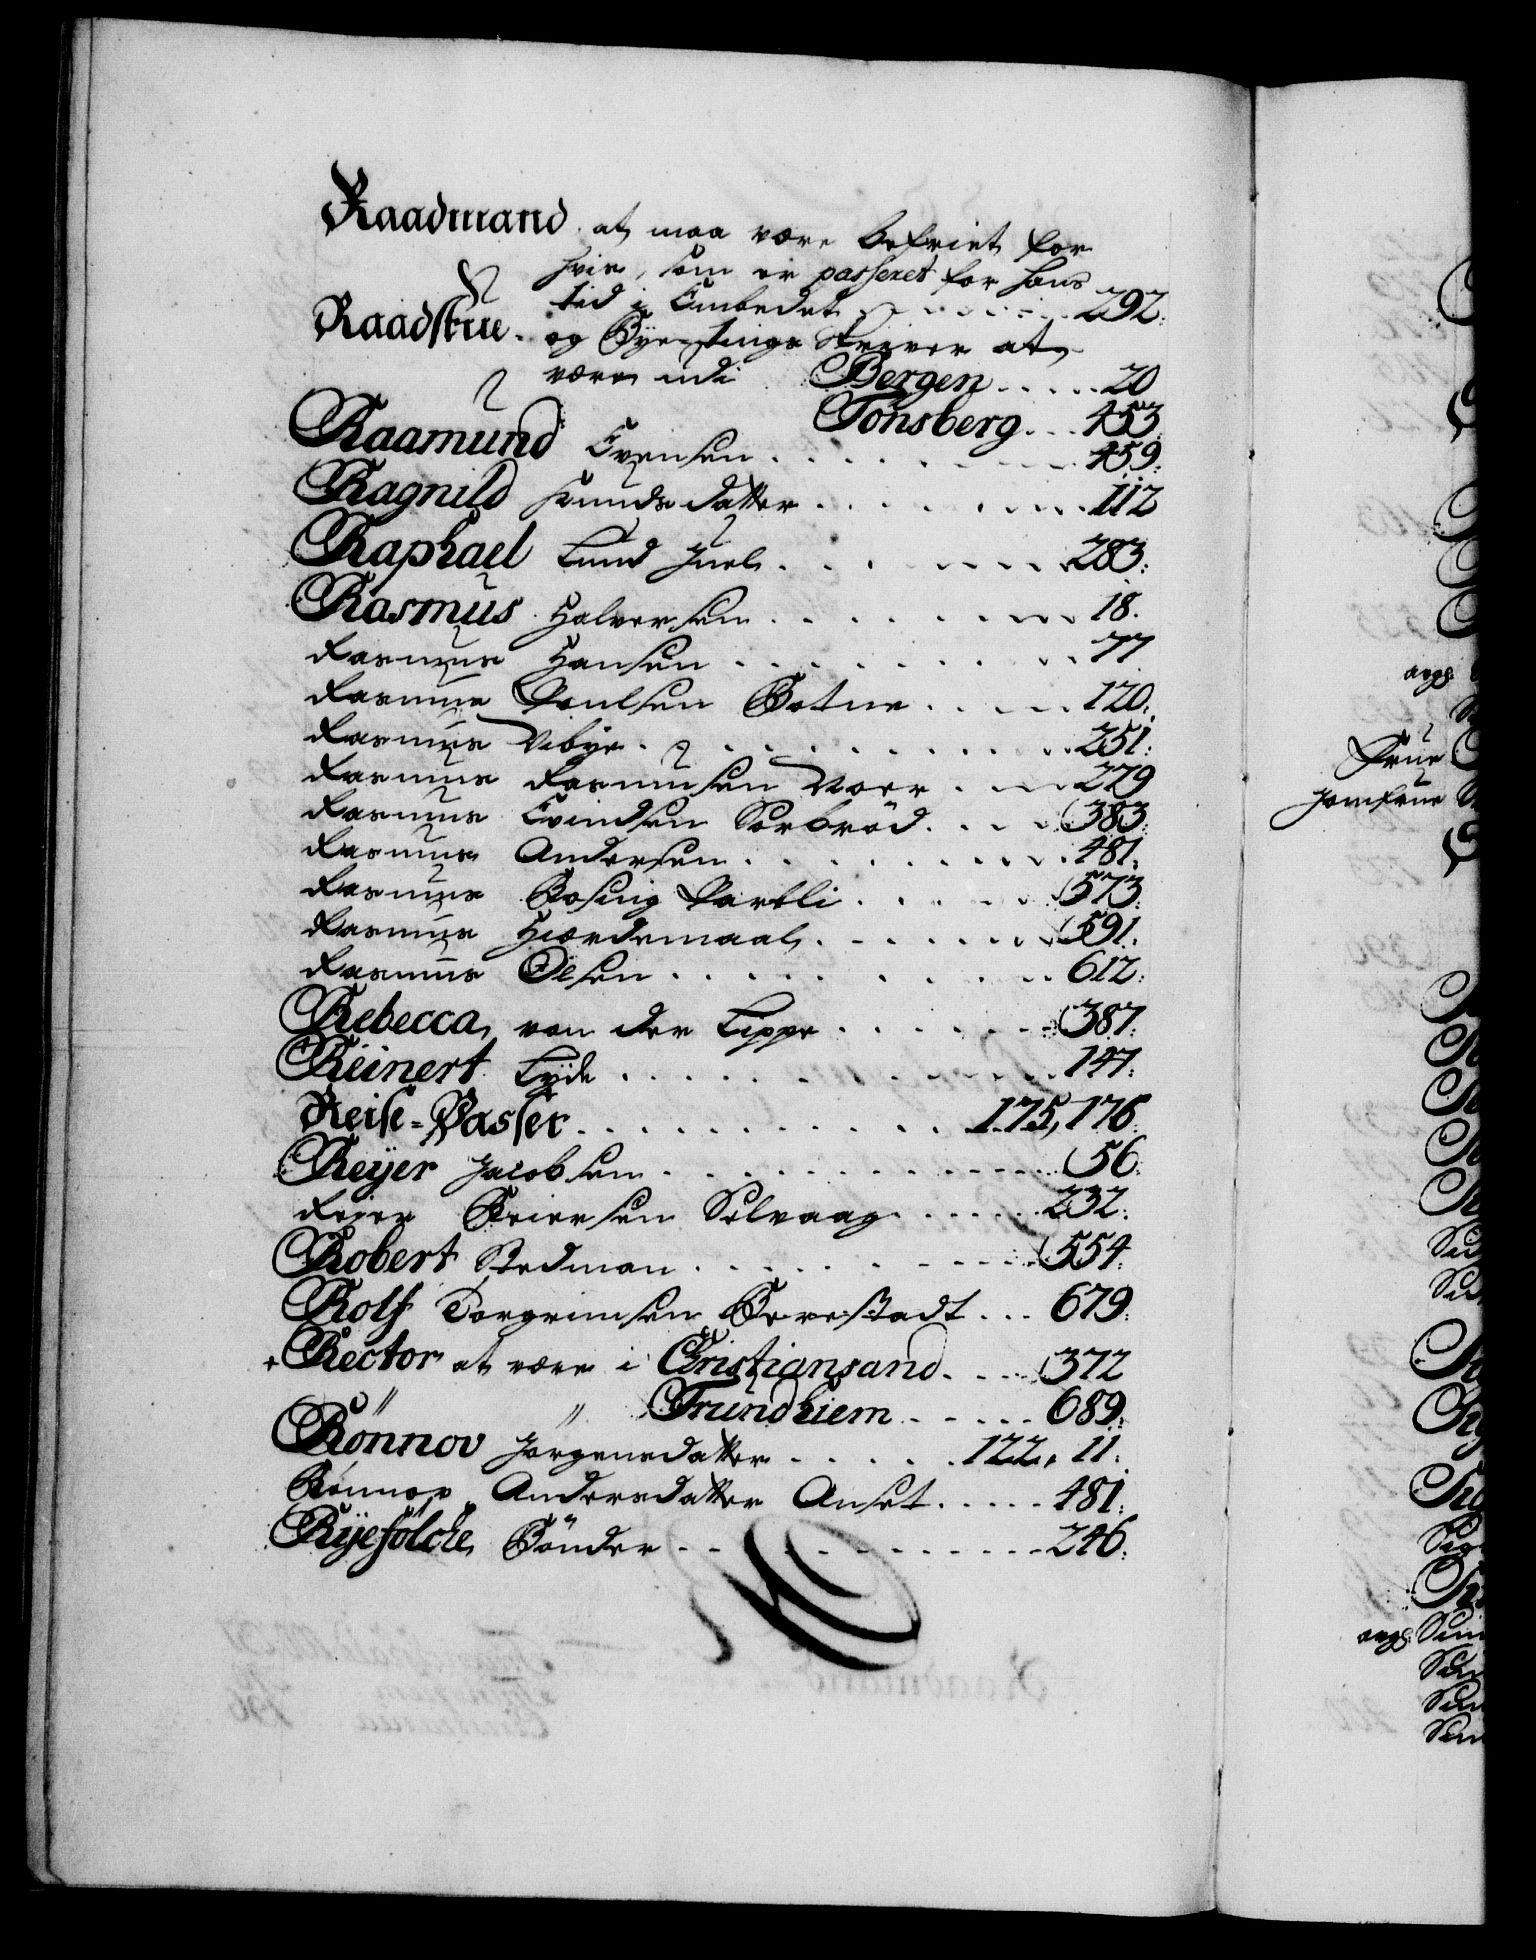 Raadmand at maa være befriet for
hvis, som er passeret for hans
tid i Embedet 292.
Raadstue og Byetings Skriver at
være udi Bergen 20
Tönsberg 453
Raamund Evensen 459.
Ragnild Knuds datter 112
Raphael Lund Juel 283.
Rasmus Halversen 18.
Rasmus Hansen 77
Rasmus Poulsen Botne 120.
Rasmus Vibye 251.
Rasmus Rasmusen Moer 279
Rasmus Evindsen Sorbröd 383.
Rasmus Andersen 481.
Rasmus Rosing 573.
Rasmus Hiærdemaal 591.
Rasmus Olsen 612.
Rebecca von der Lippe 387.
Reinert Lyde 147.
Reise-Passer 175, 176.
Reyer Jacobsen 56.
Reyer Reiersen Selvaag 232.
Robert Stedman 554.
Rolf Torgrimsen Berestadt 679.
+ Rector at være i Christiansand 372
" " Trundhiem 689.
Rönnov Jörgensdatter 122, 11.
Rönnov Andersdatter Anset 481.
Ryefölcke Bönder 246.
angl:
Frue
Jomfrue
angl: